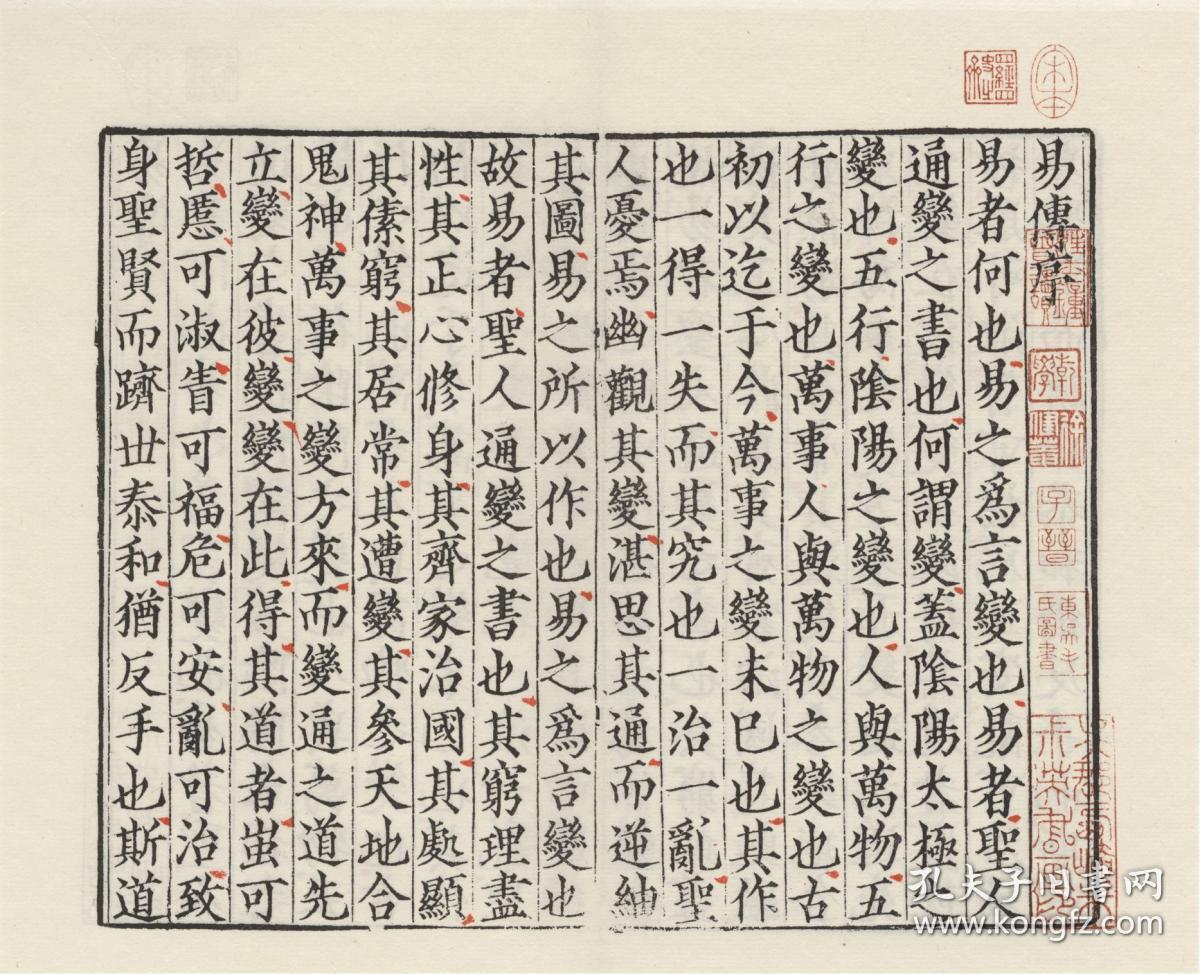 易傳序
易者何也易之爲言變也易者聖人
通變之書也何謂變蓋陰陽太極之
變也五行陰陽之變也人與萬物五
行之變也萬事人與萬物之變也古
初以迄于今萬事之變未已也其作
也一得一失而其究也一治一亂聖
人憂焉幽觀其變湛思其通而逆紬
其圖易之所以作也易之爲言變也
故易者聖人通變之書也其窮理盡
性其正心修身其齊家治國其處顯
其傃窮其居常其遭變其參天地合
鬼神萬事之變方來而變通之道先
立變在彼變變在此得其道者蚩可
哲慝可淑眚可福危可安亂可治致
身聖賢而躋丗泰和猶反手也斯道
乾學
徐健菴
子晉
東吳毛氏圖書
孔夫子旧書网
www.kongfz.com